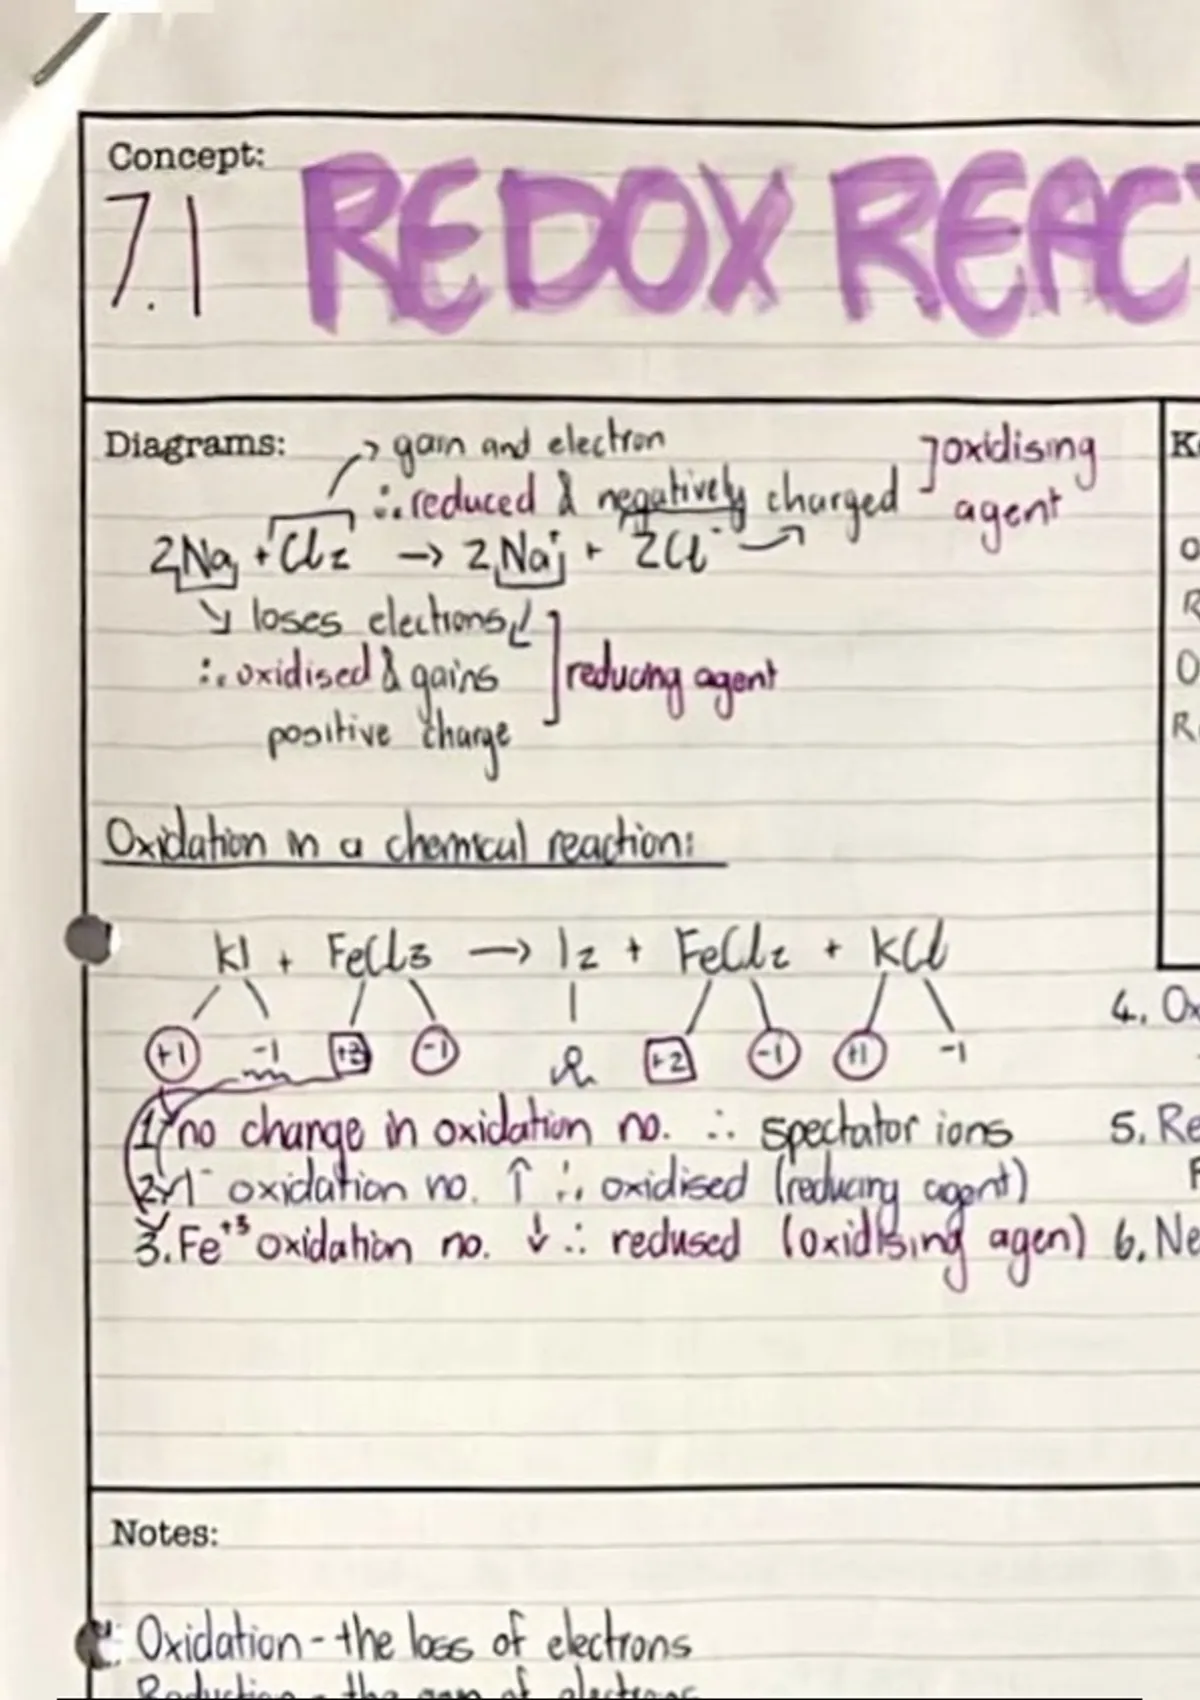 Concept:
7.1 REDOX REACT
Diagrams:
→ gain and electron
∴ reduced & negatively charged ]oxidising
agent
2Na + Cl₂ → 2Na⁺ + 2Cl⁻
↘ loses electrons
∴ oxidised & gains ]reducing agent
positive charge
Oxidation in a chemical reaction:
KI + FeCl₃ → I₂ + FeCl₂ + KCl
+1 -1 +3 -1 +2 -1 +1 -1
1. no change in oxidation no. ∴ spectator ions
2. I⁻ oxidation no. ↑ ∴ oxidised (reducing agent)
3. Fe⁺³ oxidation no. ↓ ∴ redused (oxidising agen)
K
O
R
O
R
4. Ox
5. Re
F
6. Ne
Notes:
Oxidation - the loss of electrons
Reduction - the gain of electrons